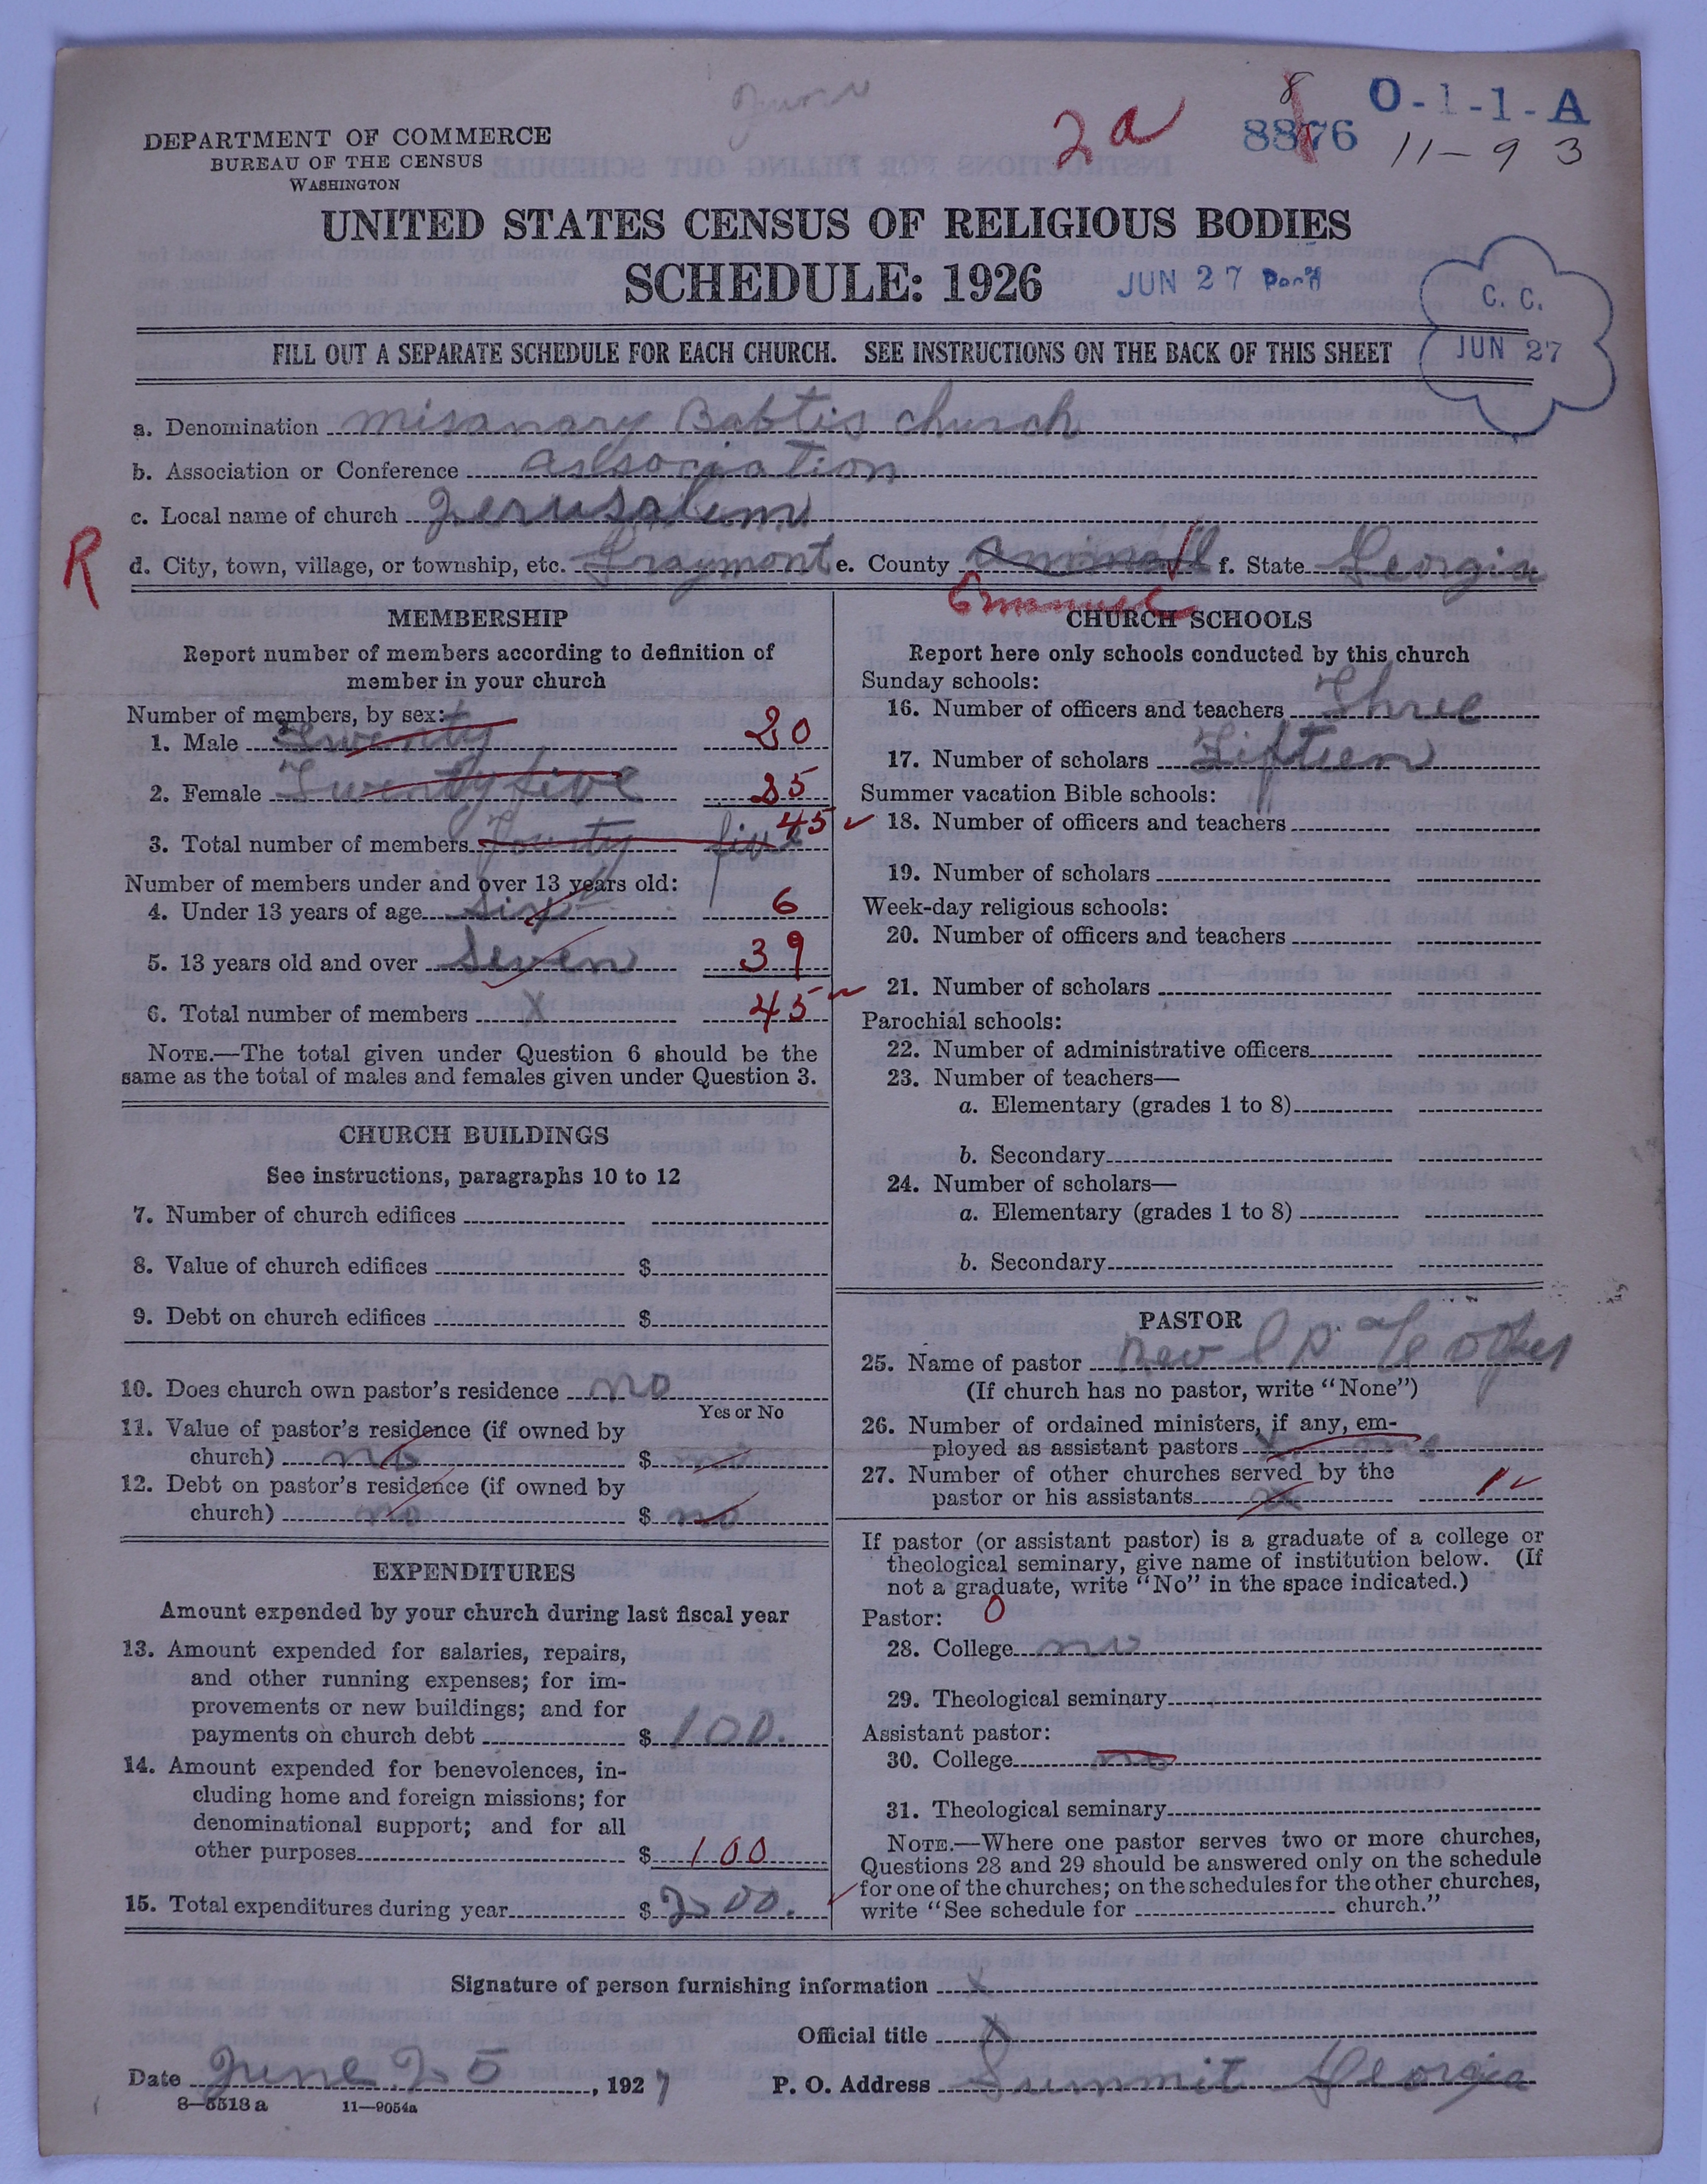 June
2a
8
8876
O-1-1-A
11-93
DEPARTMENT OF COMMERCE
BUREAU OF THE CENSUS
WASHINGTON
UNITED STATES CENSUS OF RELIGIOUS BODIES
SCHEDULE: 1926
JUN 27
C. C.
JUN 27
FILL OUT A SEPARATE SCHEDULE FOR EACH CHURCH. SEE INSTRUCTIONS ON THE BACK OF THIS SHEET
a. Denomination misanary Babtis church
b. Association or Conference association
c. Local name of church Jerusalem
R
d. City, town, village, or township, etc. Graymont e. County f. State Georgia
Emanuel
MEMBERSHIP
Report number of members according to definition of
member in your church
Number of members, by sex:
1. Male Twenty 20
2. Female Twenty five 25
3. Total number of members Fourty five 45
Number of members under and over 13 years old:
4. Under 13 years of age six 6
5. 13 years old and over seven 39
6. Total number of members X 45
NOTE.—The total given under Question 6 should be the
same as the total of males and females given under Question 3.
CHURCH BUILDINGS
See instructions, paragraphs 10 to 12
7. Number of church edifices
8. Value of church edifices $
9. Debt on church edifices $
10. Does church own pastor's residence no
Yes or No
11. Value of pastor's residence (if owned by
church) no $ no
12. Debt on pastor's residence (if owned by
church) no $ no
EXPENDITURES
Amount expended by your church during last fiscal year
13. Amount expended for salaries, repairs,
and other running expenses; for im-
provements or new buildings; and for
payments on church debt $ 100.
14. Amount expended for benevolences, in-
cluding home and foreign missions; for
denominational support; and for all
other purposes $ 100
15. Total expenditures during year $ 200.
CHURCH SCHOOLS
Report here only schools conducted by this church
Sunday schools:
16. Number of officers and teachers Three
17. Number of scholars Fifteen
Summer vacation Bible schools:
18. Number of officers and teachers
19. Number of scholars
Week-day religious schools:
20. Number of officers and teachers
21. Number of scholars
Parochial schools:
22. Number of administrative officers
23. Number of teachers—
a. Elementary (grades 1 to 8)
b. Secondary
24. Number of scholars—
a. Elementary (grades 1 to 8)
b. Secondary
PASTOR
25. Name of pastor Rev
(If church has no pastor, write "None")
26. Number of ordained ministers, if any, em-
ployed as assistant pastors
27. Number of other churches served by the
pastor or his assistants 1
If pastor (or assistant pastor) is a graduate of a college or
theological seminary, give name of institution below. (If
not a graduate, write "No" in the space indicated.)
Pastor: 0
28. College no
29. Theological seminary
Assistant pastor:
30. College no
31. Theological seminary
NOTE.—Where one pastor serves two or more churches,
Questions 28 and 29 should be answered only on the schedule
for one of the churches; on the schedules for the other churches,
write "See schedule for church."
Signature of person furnishing information X
Official title X
Date June 25, 1927 P. O. Address Summit Georgia
8—5518 a 11—9054a